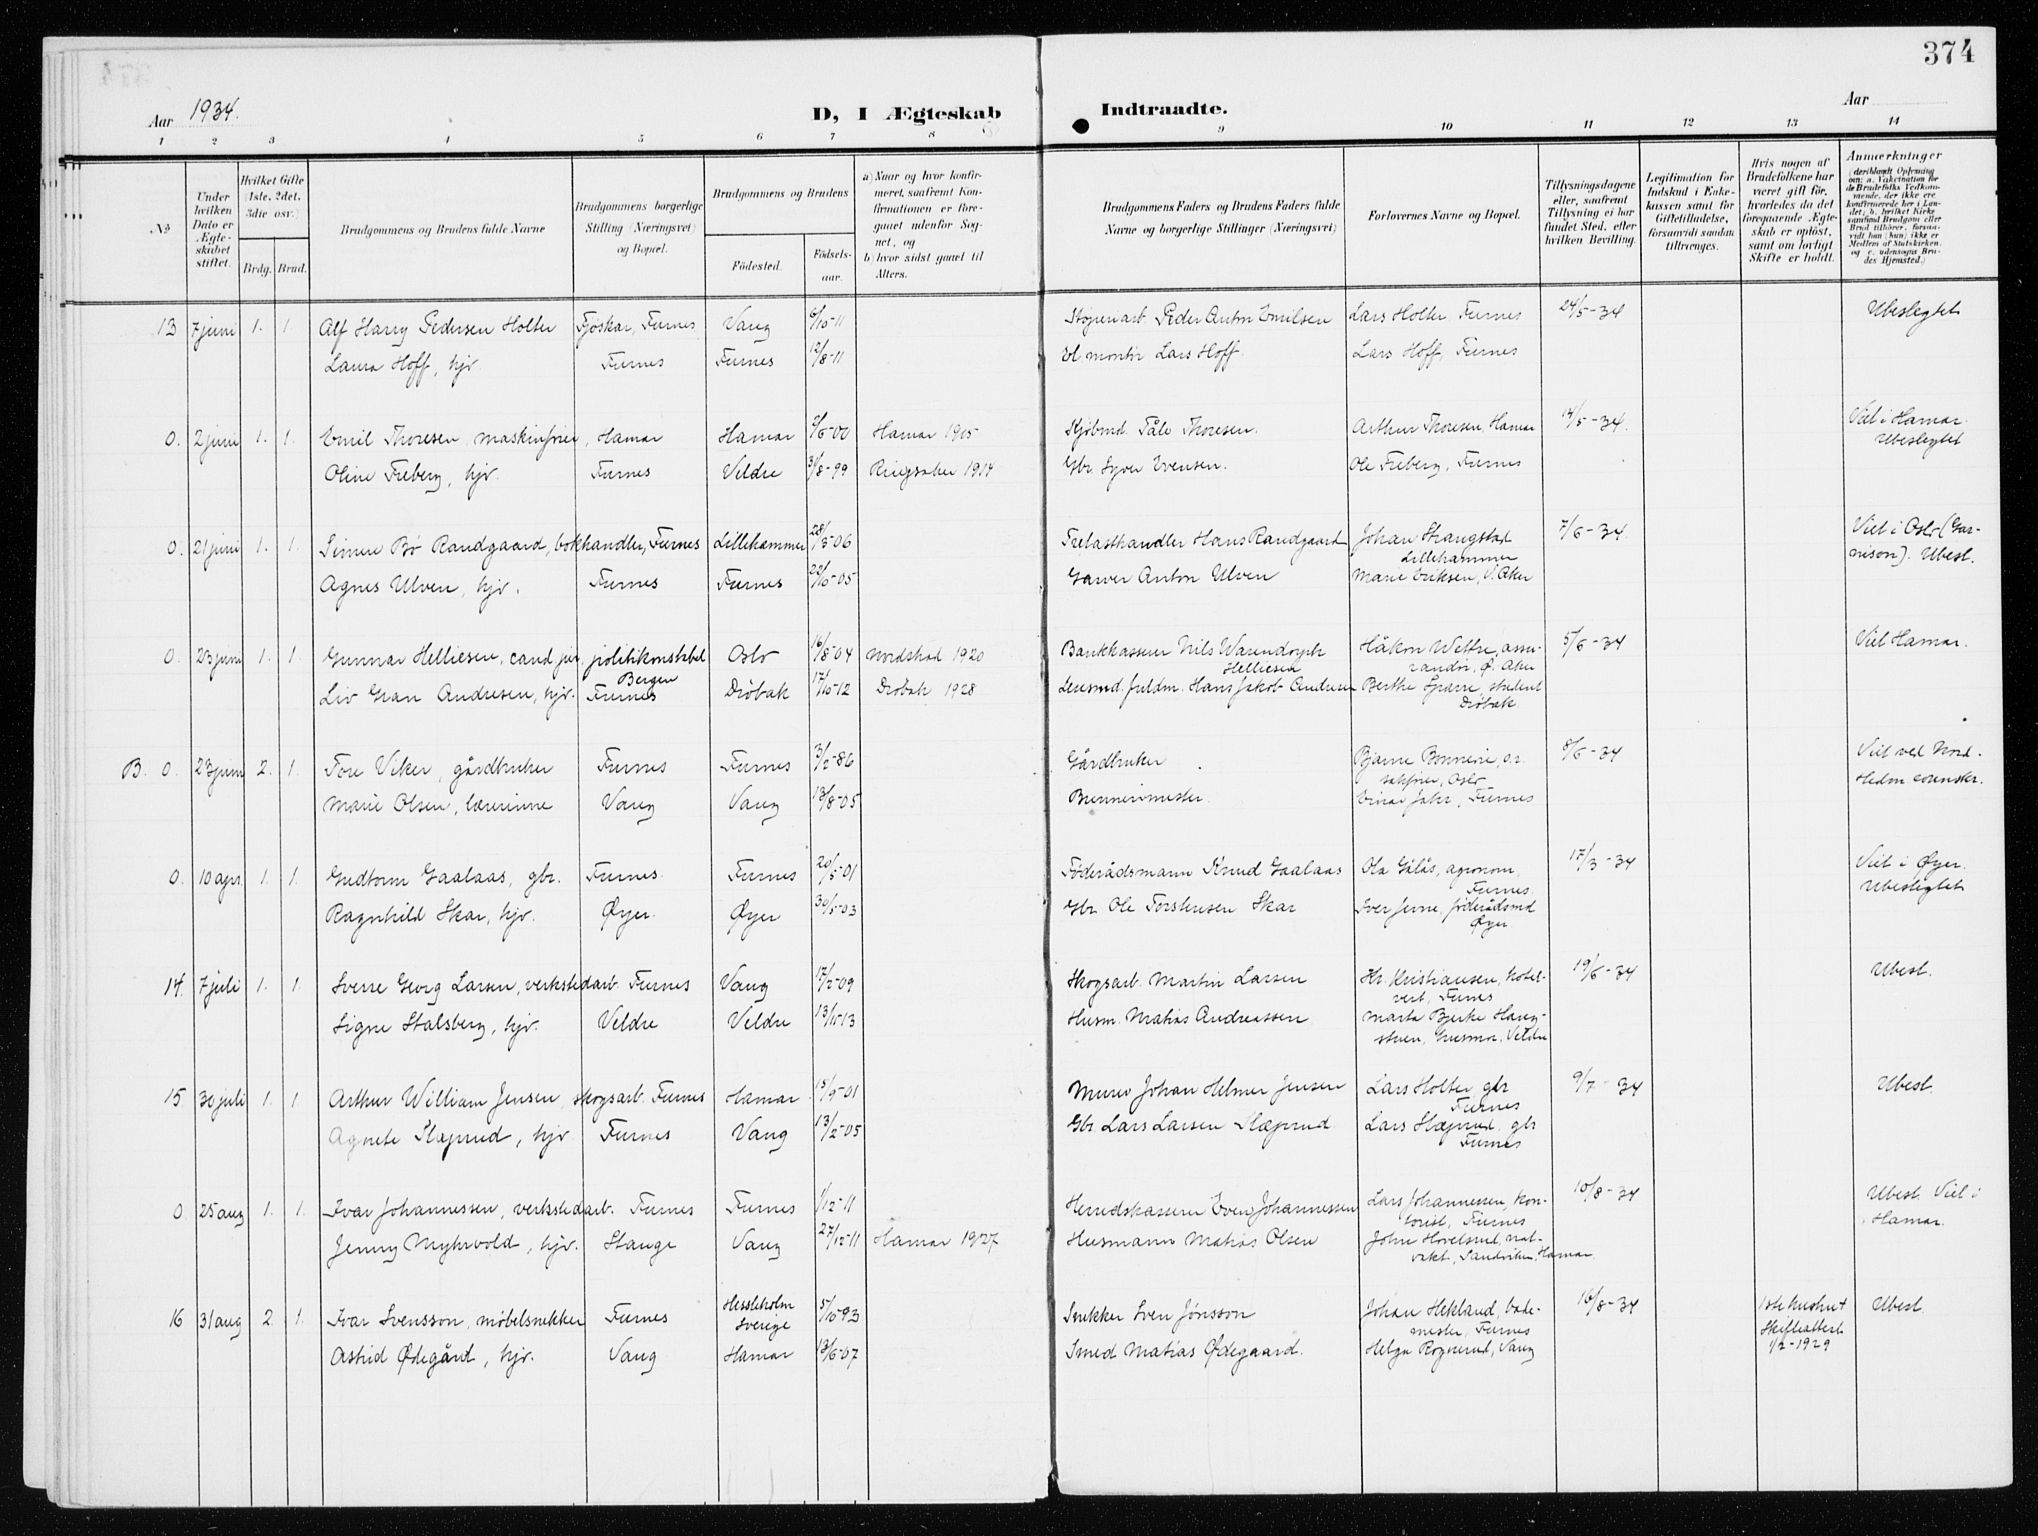 374
Aar 1934.
D, I Ægteskab Indtraadte.
Aar
1 2 3 4 5 6 7 8 9 10 11 12 13 14
No
Under hvilken Dato er Ægteskabet stiftet.
Hvilket Gifte (1ste, 2det, 3die osv.)
Brdg. Brud.
Brudgommens og Brudens fulde Navne
Brudgommens borgerlige Stilling (Næringsvei) og Bopæl.
Brudgommens og Brudens
Fødested.
Fødselsaar.
a) Naar og hvor konfirmeret, saafremt Konfirmationen er foregaaet udenfor Sognet, og
b) hvor sidst gaaet til Alters.
Brudgommens Faders og Brudens Faders fulde Navne og borgerlige Stillinger (Næringsvei)
Forlovernes Navne og Bopæl.
Tillysningsdagene eller, saafremt Tillysning ei har fundet Sted, efter hvilken Bevilling.
Legitimation for Indskud i Enkekassen samt for Giftetilladelse, forsaavidt saadan tiltrænges.
Hvis nogen af Brudefolkene har været gift før, hvorledes da det foregaaende Ægteskab er opløst, samt om lovligt Skifte er holdt.
Anmærkninger
13 7 juni 1. 1. Alf Harry Pedersen Holter Fjøskar, Furnes Vang 6/10-11 Støperiarb. Peder Anton Emilsen Lars Holter, Furnes 24/5-34 Ubeslegtet
Laura Hoff, hjv. Furnes Furnes 12/8-11 El montør Lars Hoff. Lars Hoff, Furnes
0. 2 juni 1. 1. Emil Thoresen, maskinfører, Hamar Hamar Hamar 1915 Kjøbmd. Påle Thoresen. Arthur Thoresen, Hamar 14/5-34. Viet i Hamar.
Ubeslegtet
Oline Freberg, hjv. Furnes Veldre 31/8-99 Ringsaker 1914 Gbr. Syver Evensen. Ole Freberg, Furnes
0. 21 juni 1. 1. Simen Bø Randgaard, bokhandler, Furnes Lillehammer 28/3-06 Trelasthandler Hans Randgaard Johan Strangstad
Lillehammer 7/6-34. Viet i Oslo (Garnison). Ubesl.
Agnes Ulven, hjv. Furnes Furnes Garver Anton Ulven Marie Eriksen, V. Aker
0. 23 juni 1. 1. Gunnar Helliesen, cand jur. politikonstabel
Bergen Oslo 16/8-04 Nordstrand 1920 Bankkasserer Nils Warendorph
Helliesen Håkon Wettre, assurandør, Ø. Aker 5/6-34 Viet Hamar.
Liv Gran Andresen, hjv. Furnes Drøbak 17/10-12 Drøbak 1928 Lensmd. fuldm. Hans Jakob Andresen Berthe Sparre, student
Drøbak
B. 0. 23 juni 2. 1. Tore Viker, gårdbruker Furnes Furnes 3/2-86 Gårdbruker Bjarne Bonnerie, o.r.
sakfører, Oslo 8/6-34 Viet ved Nord-
Hedm sorenskr.
Marie Olsen, lærerinne Vang Vang 13/8-05 Brennerimester. Einar Jahr, Furnes
0. 10 apr. 1. 1. Gudtorm Gaalaas, gbr. Furnes Furnes 20/5-01 Føderådsmann Knud Gaalaas Ola Gålås, agronom,
Furnes. 17/3-34 Viet i Øyer.
Ubeslegtet
Ragnhild Skar, hjv. Øyer. Øyer 30/5-03 Gbr. Ole Torstensen Skar Iver Jevne, føderådsmd
Øyer
14. 7 juli 1. 1. Sverre Georg Larsen, verkstedarb. Furnes Vang 17/2-09 Skogsarb. Martin Larsen Hr. Kristiansen, hotelvert, Furnes 19/6-34 Ubesl.
Signe Stalsberg, hjv. Veldre Veldre 13/11-13 Husm. Matias Andreassen Marta Bjerke Haugstuen, Veldre
15 30 juli 1. 1 Arthur William Jensen, skogsarb. Furnes Hamar 15/9-01 Murer Johan Helmer Jensen Lars Holter, gbr
Furnes 9/7-34 Ubesl.
Agnete Slæperud, hjv Furnes Vang 13/2-05 Gbr. Lars Larsen Slæperud Lars Slæperud. gbr
Furnes
0. 25 aug 1. 1. Ivar Johannessen, verkstedarb. Furnes Furnes 1/12-11 Herredskasserer Even Johannessen Lars Johannessen, kontorist, Furnes 10/8-34 Ubesl. Viet i
Hamar.
Jenny Myhrvold, hjv. Stange Vang 27/12-11 Hamar 1927 Husmann Matias Olsen John Hovelsrud, natvakt, Sandviken, Hamar
16 31 aug 2 1. Ivar Svensson, møbelsnekker Furnes Hessleholm
Sverige 5/10-93 Snekker Sven Jønsson Johan Hekland, bademester, Furnes 16/8-34 1ste hustru †
Skifteattest
1/2-1929 Ubesl.
Astrid Ødegård, hjv. Vang Hamar 13/6-07 Smed Matias Ødegaard. Helga Rognerud, Vang